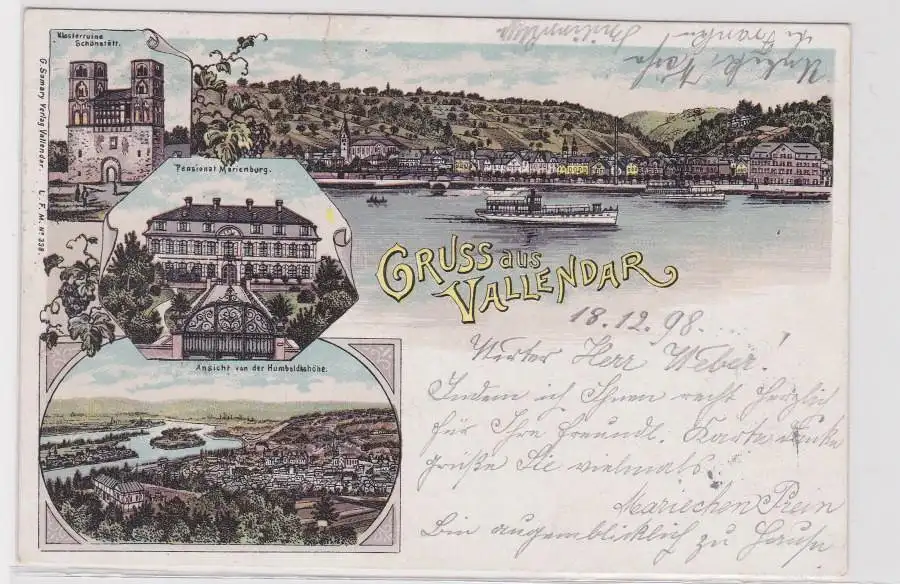 Klosterruine
Schönstätt.
G. Samary Verlag Vallendar. L. F. M. No 338
Pensionat Marienburg.
GRUSS aus
VALLENDAR
Ansicht von der Humboldtshöhe.
18.12.98.
Werter Herr Weber!
Indem ich Ihnen recht herzlich
für Ihre freundl. Karte danke
grüße Sie vielmals
Mariechen Prein
Bin augenblicklich zu Hause